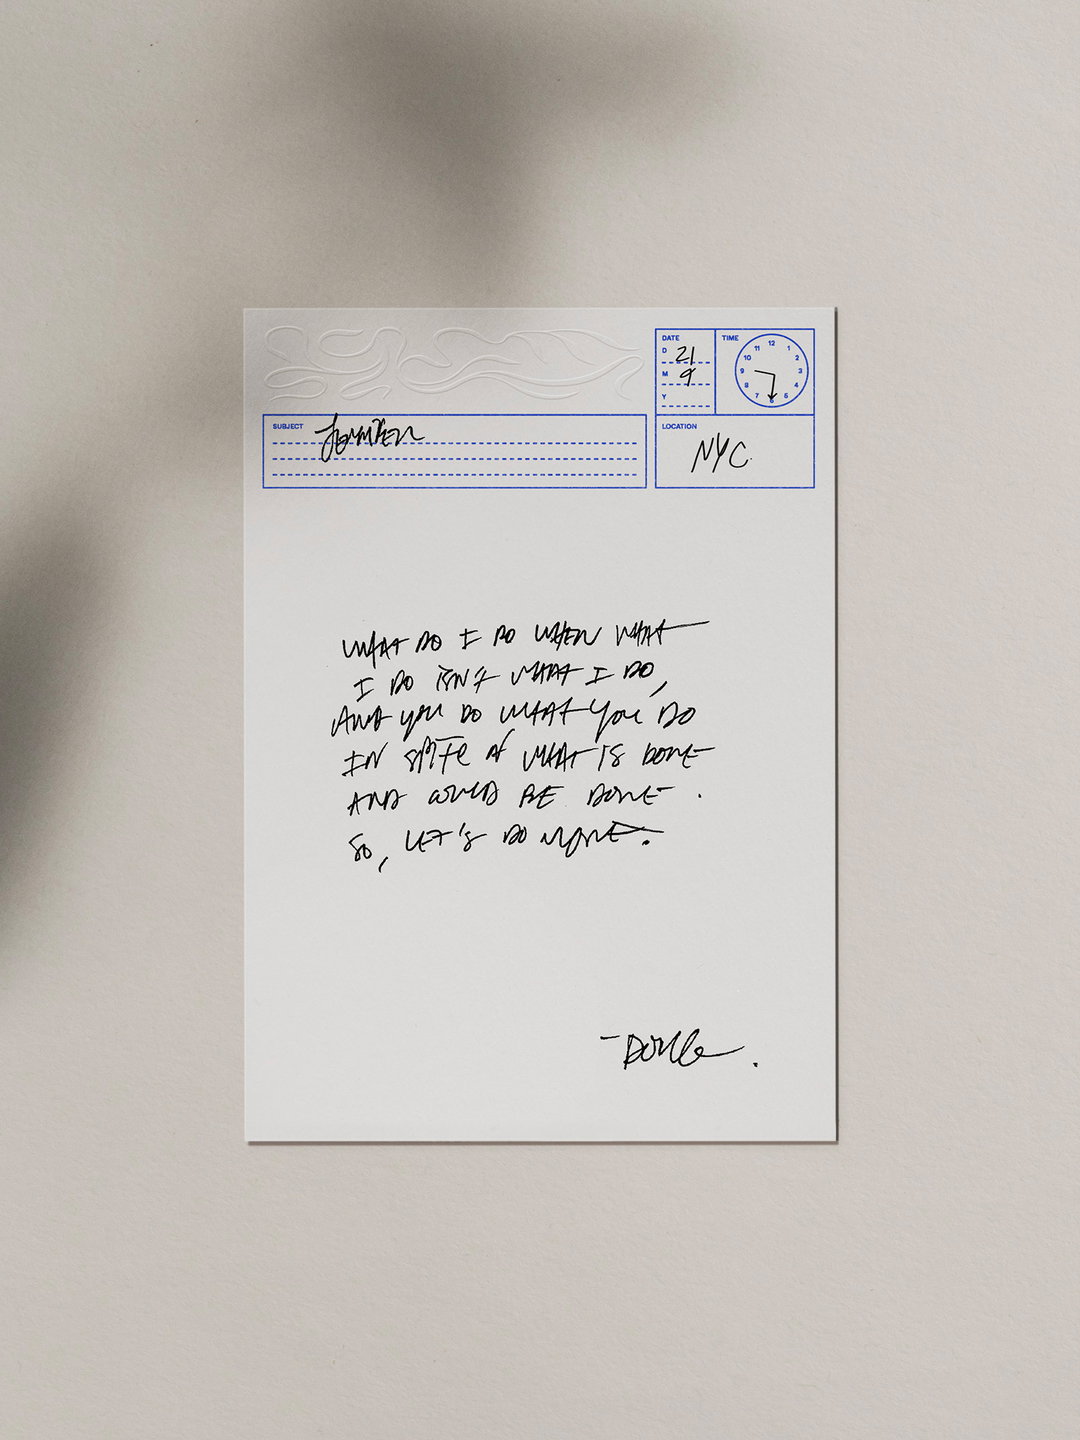 DATE
D 21
M 9
Y
TIME
12
1
2
3
4
5
6
7
8
9
10
11
SUBJECT
LOCATION
NYC.
WHAT DO I DO WHEN WHAT
I DO ISN'T WHAT I DO,
AND YOU DO WHAT YOU DO
IN SPITE OF WHAT IS DONE
AND COULD BE DONE.
SO, LET'S DO MORE.